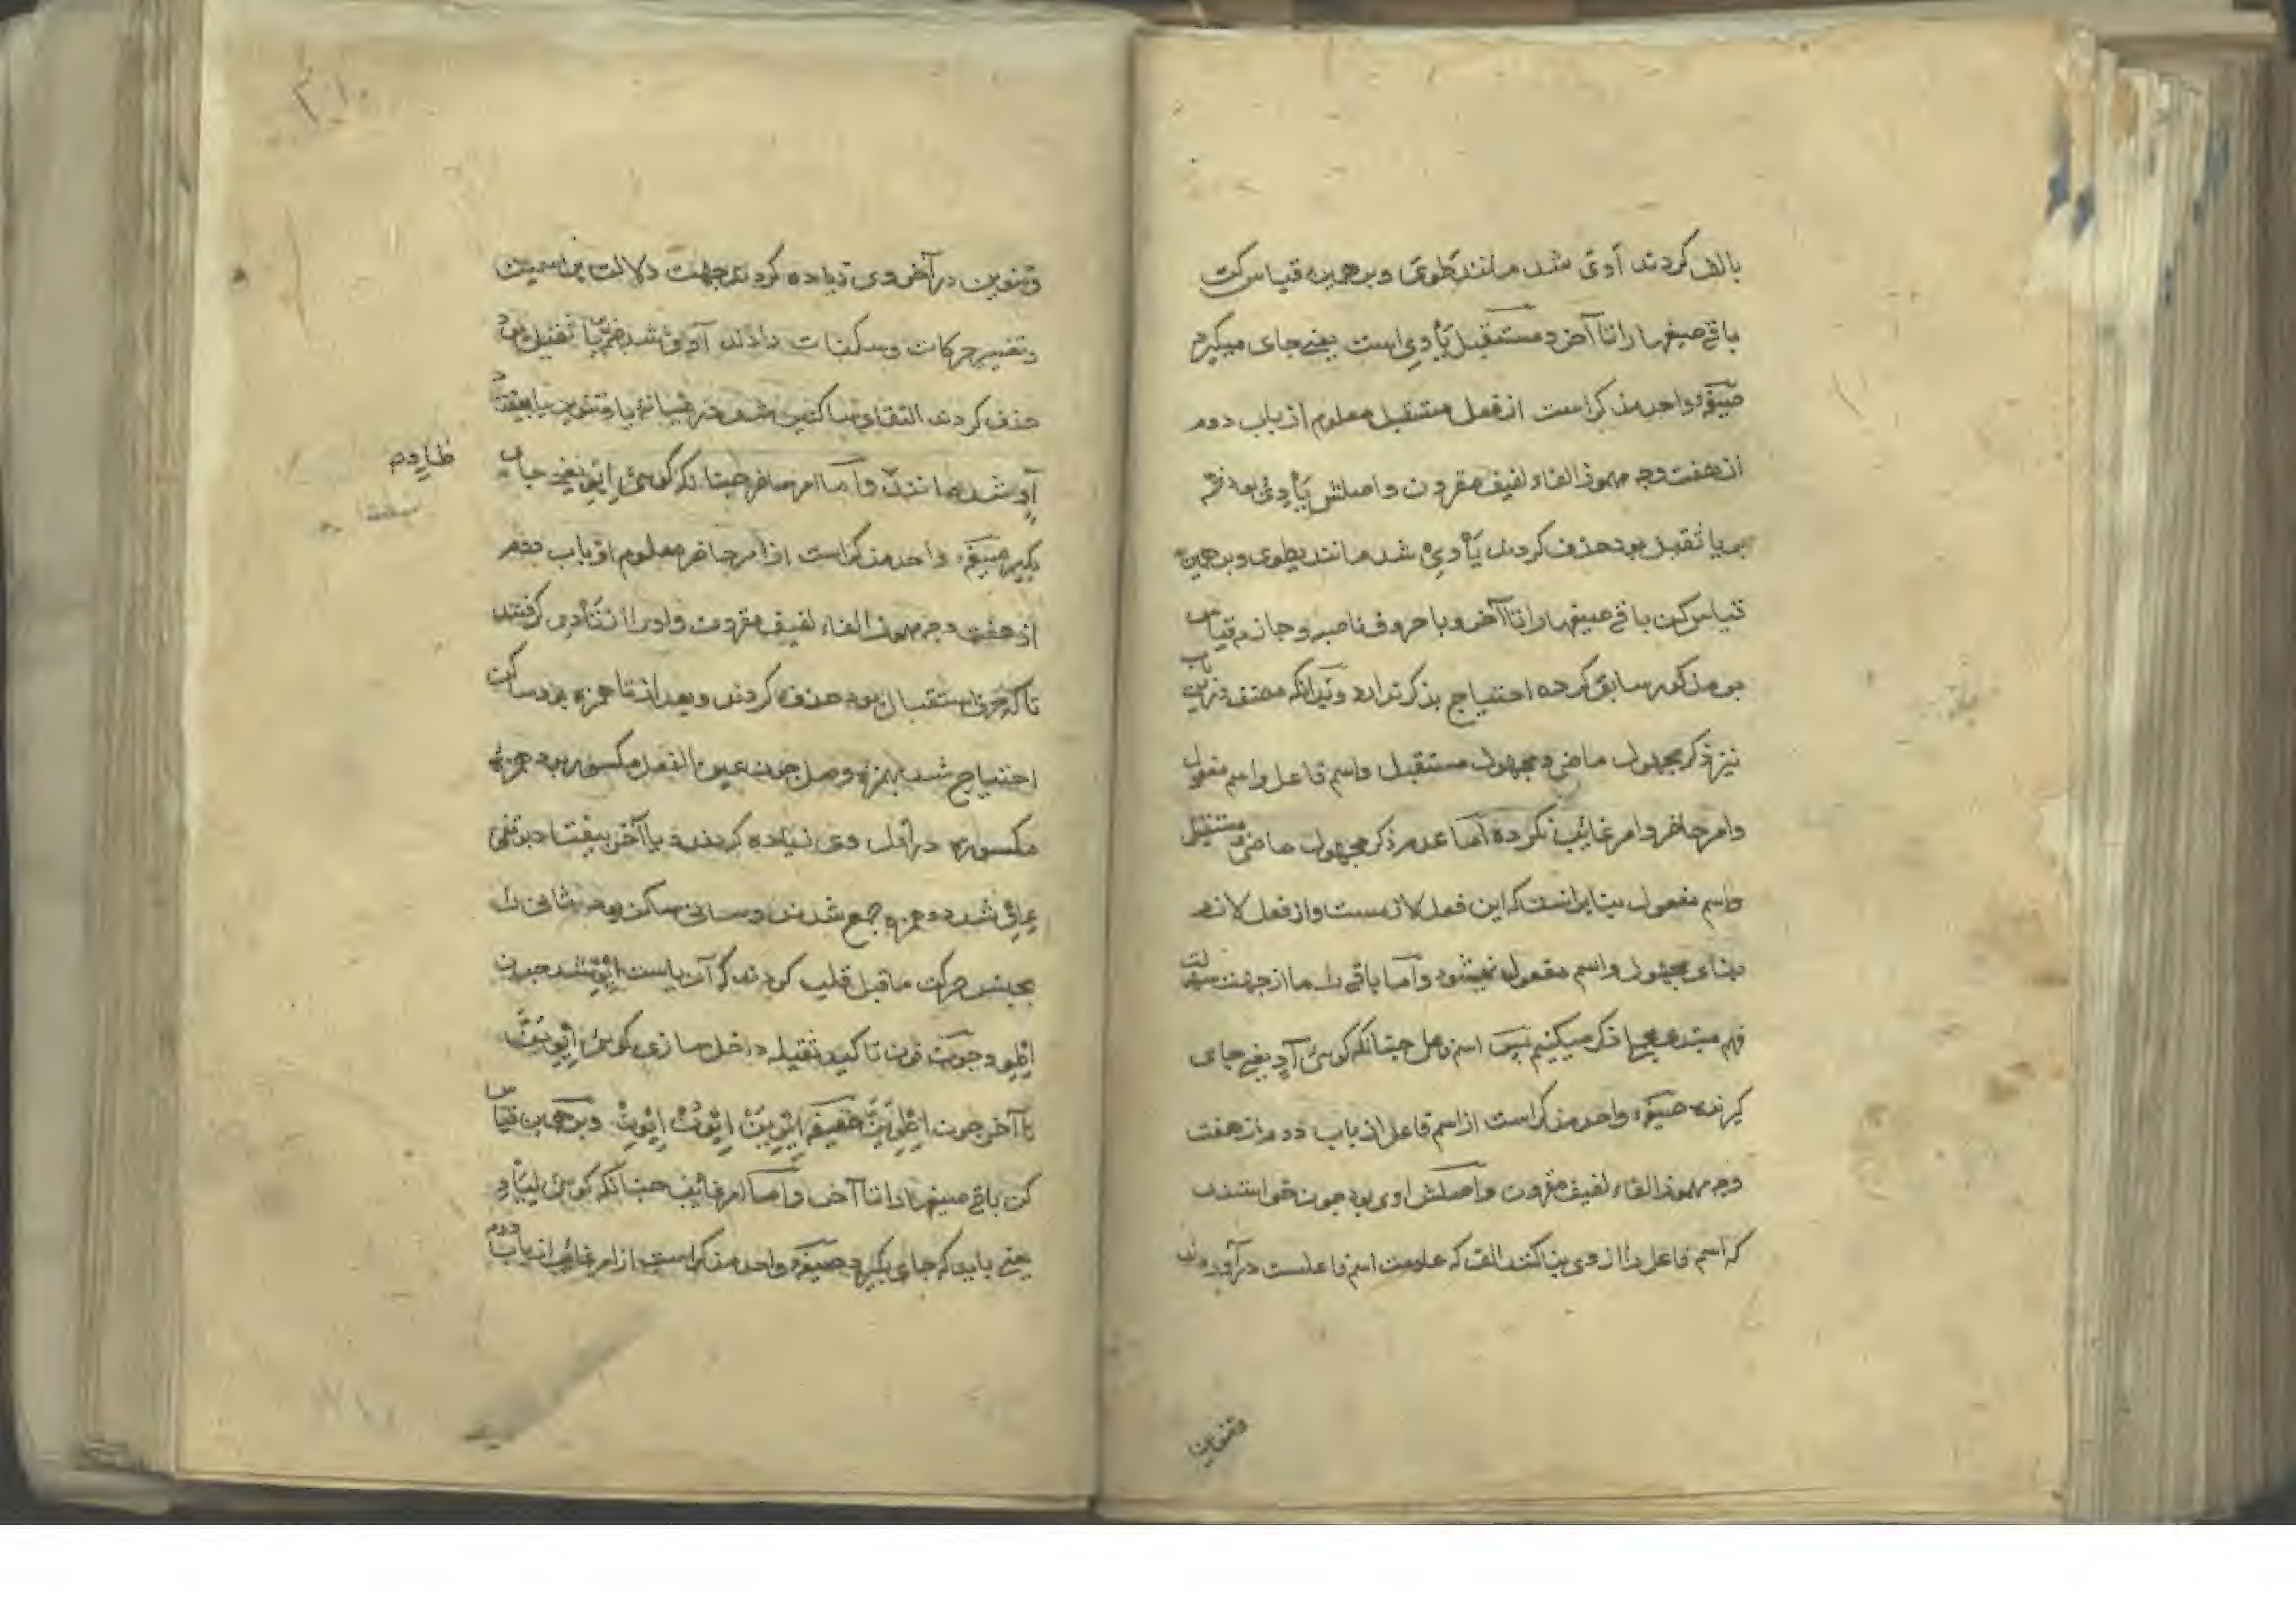 بالف کردند آوی شد مانند طوی و برهمین قیاس کن
باقی صیغهارا تا آخر و مستقبل یأوی است یعنی جای میگیرد
صیغهٔ واحد مذکر است از فعل مستقبل معلوم از باب دوم
از هفت وجه مهموز الفاء لفیف مقرون و اصلش یأوی بود ضم
بر یا ثقیل بود حذف کردند یأوی شد مانند یطوی و برهمین
قیاس کن باقی صیغهارا تا آخر و با حروف ناصبه و جازمه قیاس
بر مذکور سابق کرده احتیاج بذکر ندارد و بدانکه مصنف درین باب
نیز ذکر مجهول ماضی و مجهول مستقبل و اسم فاعل و اسم مفعول
و امر حاضر و امر غائب نکرده اما عدم ذکر مجهول ماضی و مستقبل
و اسم مفعول بنابرانست که این فعل لازمست و از فعل لازم
بنای مجهول و اسم مفعول نمیشود و اما باقی را ما از جهت سهولت
فهم مبتدی ذکر میکنیم پس اسم فاعل چنانکه گوئی آوٍ یعنی جای
گیرنده صیغهٔ واحد مذکر است از اسم فاعل از باب دوم از هفت
وجه مهموز الفاء لفیف مقرون و اصلش اوی بود چون خواستند
که اسم فاعل را از وی بنا کنند الف که علامت اسم فاعلست درآوردند
وتنوین
۳۱۰
وتنوین در آخر وی زیاده کردند جهت دلالت بر اسمیت
و تغییر حرکات و سکنات دادند آوی شد ضم بر یا ثقیل بود
حذف کردند التقای ساکنین شد در میانه یا و تنوین یا بیفتاد
آوٍ شد مانند و اما امر حاضر چنانکه گوئی ایو یعنی جای
طاوٍ م
بگیر صیغهٔ واحد مذکر است از امر حاضر معلوم از باب دوم
از هفت وجه مهموز الفاء لفیف مقرون و او را از تأوی گرفتند
تا که حرف استقبال بود حذف کردند و بعد از تا همزه بود ساکن
احتیاج شد بهمزه وصل چون عین الفعل مکسور بود همزه
مکسوره در اول وی زیاده کردند و یا آخر بیفتاد بوقفی
شد دو همزه جمع شدند و ساکن بود ثانی را
بجنس حرکت ماقبل قلب کردند که آن یاست ایو شد چون
اطو و چون نون تاکید ثقیله داخل سازی گوئی ایوینّ
تا آخر چون اطوینّ خفیفه ایوین ایون ایون و برهمین قیاس
کن باقی صیغهارا تا آخر و اما امر غائب چنانکه گوئی لیأو
یعنی باید که جای بگیرد صیغهٔ واحد مذکر است از امر غائب از باب دوم